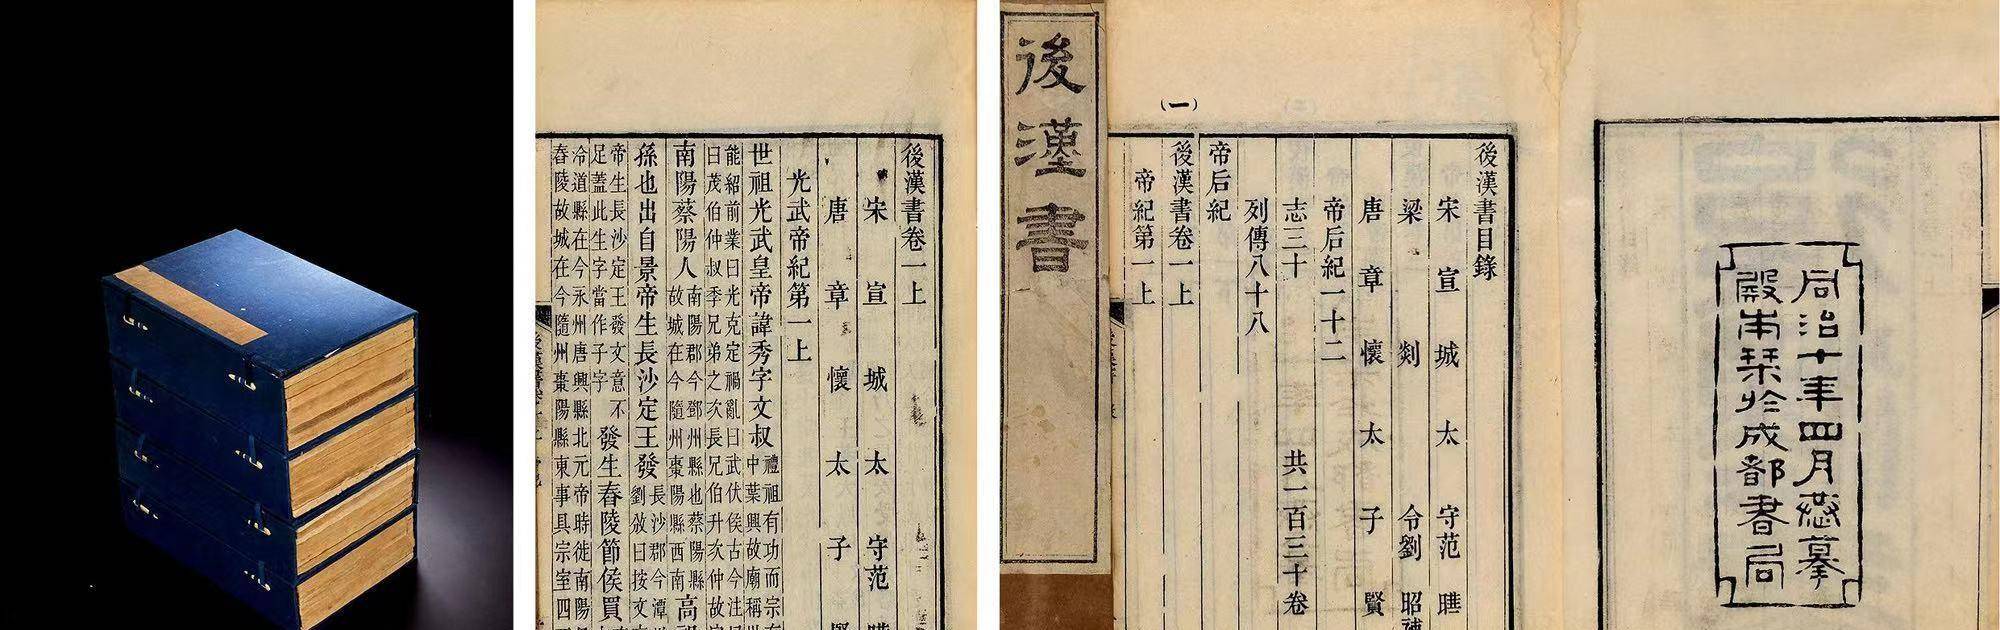 後漢書卷一上
宋宣城太守范曄
唐章懷太子賢
光武帝紀第一上
世祖光武皇帝諱秀字文叔禮祖有功而宗有
中葉興故廟稱世
能紹前業曰光克定禍亂曰武伏侯古今注
曰茂伯仲叔季兄弟之次長兄伯升次仲故
南陽蔡陽人南陽郡今鄧州縣也蔡陽縣
故城在今隨州棗陽縣西南高祖
孫也出自景帝生長沙定王發長沙郡今潭
劉攽曰按文
帝生長沙定王發文意不
足蓋此生字當作子字發生舂陵節侯買
冷道縣在今永州唐興縣北元帝時徙南陽
舂陵故城在今隨州棗陽縣東事具宗室四
後漢書
同治十年四月恭摹
殿本栞於成都書局
後漢書目錄
宋宣城太守范曄
梁剡令劉昭補
唐章懷太子賢
帝后紀一十二
志三十共一百三十卷
列傳八十八
帝后紀
後漢書卷一上
帝紀第一上
(一)